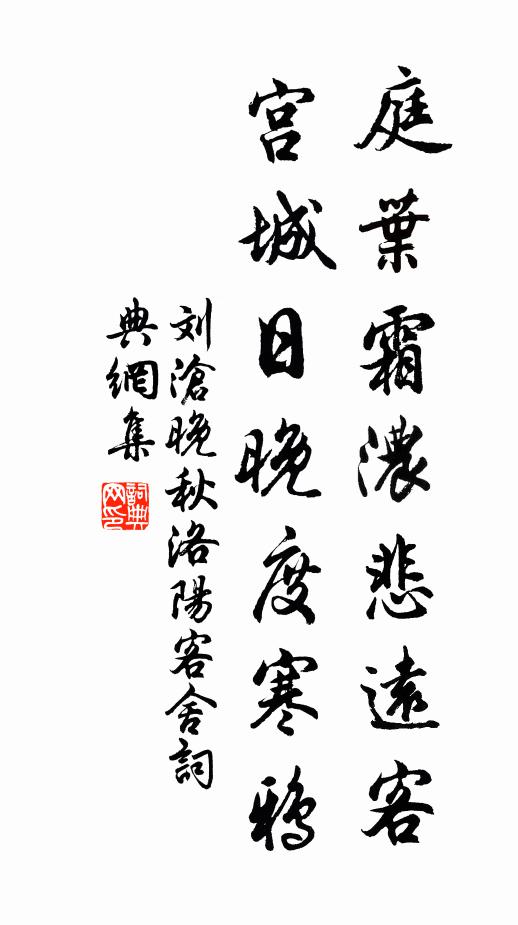 庭葉霜濃悲遠客
宮城日晚度寒鴉
刘滄晚秋洛陽客舍詞
典網集
詞典网印